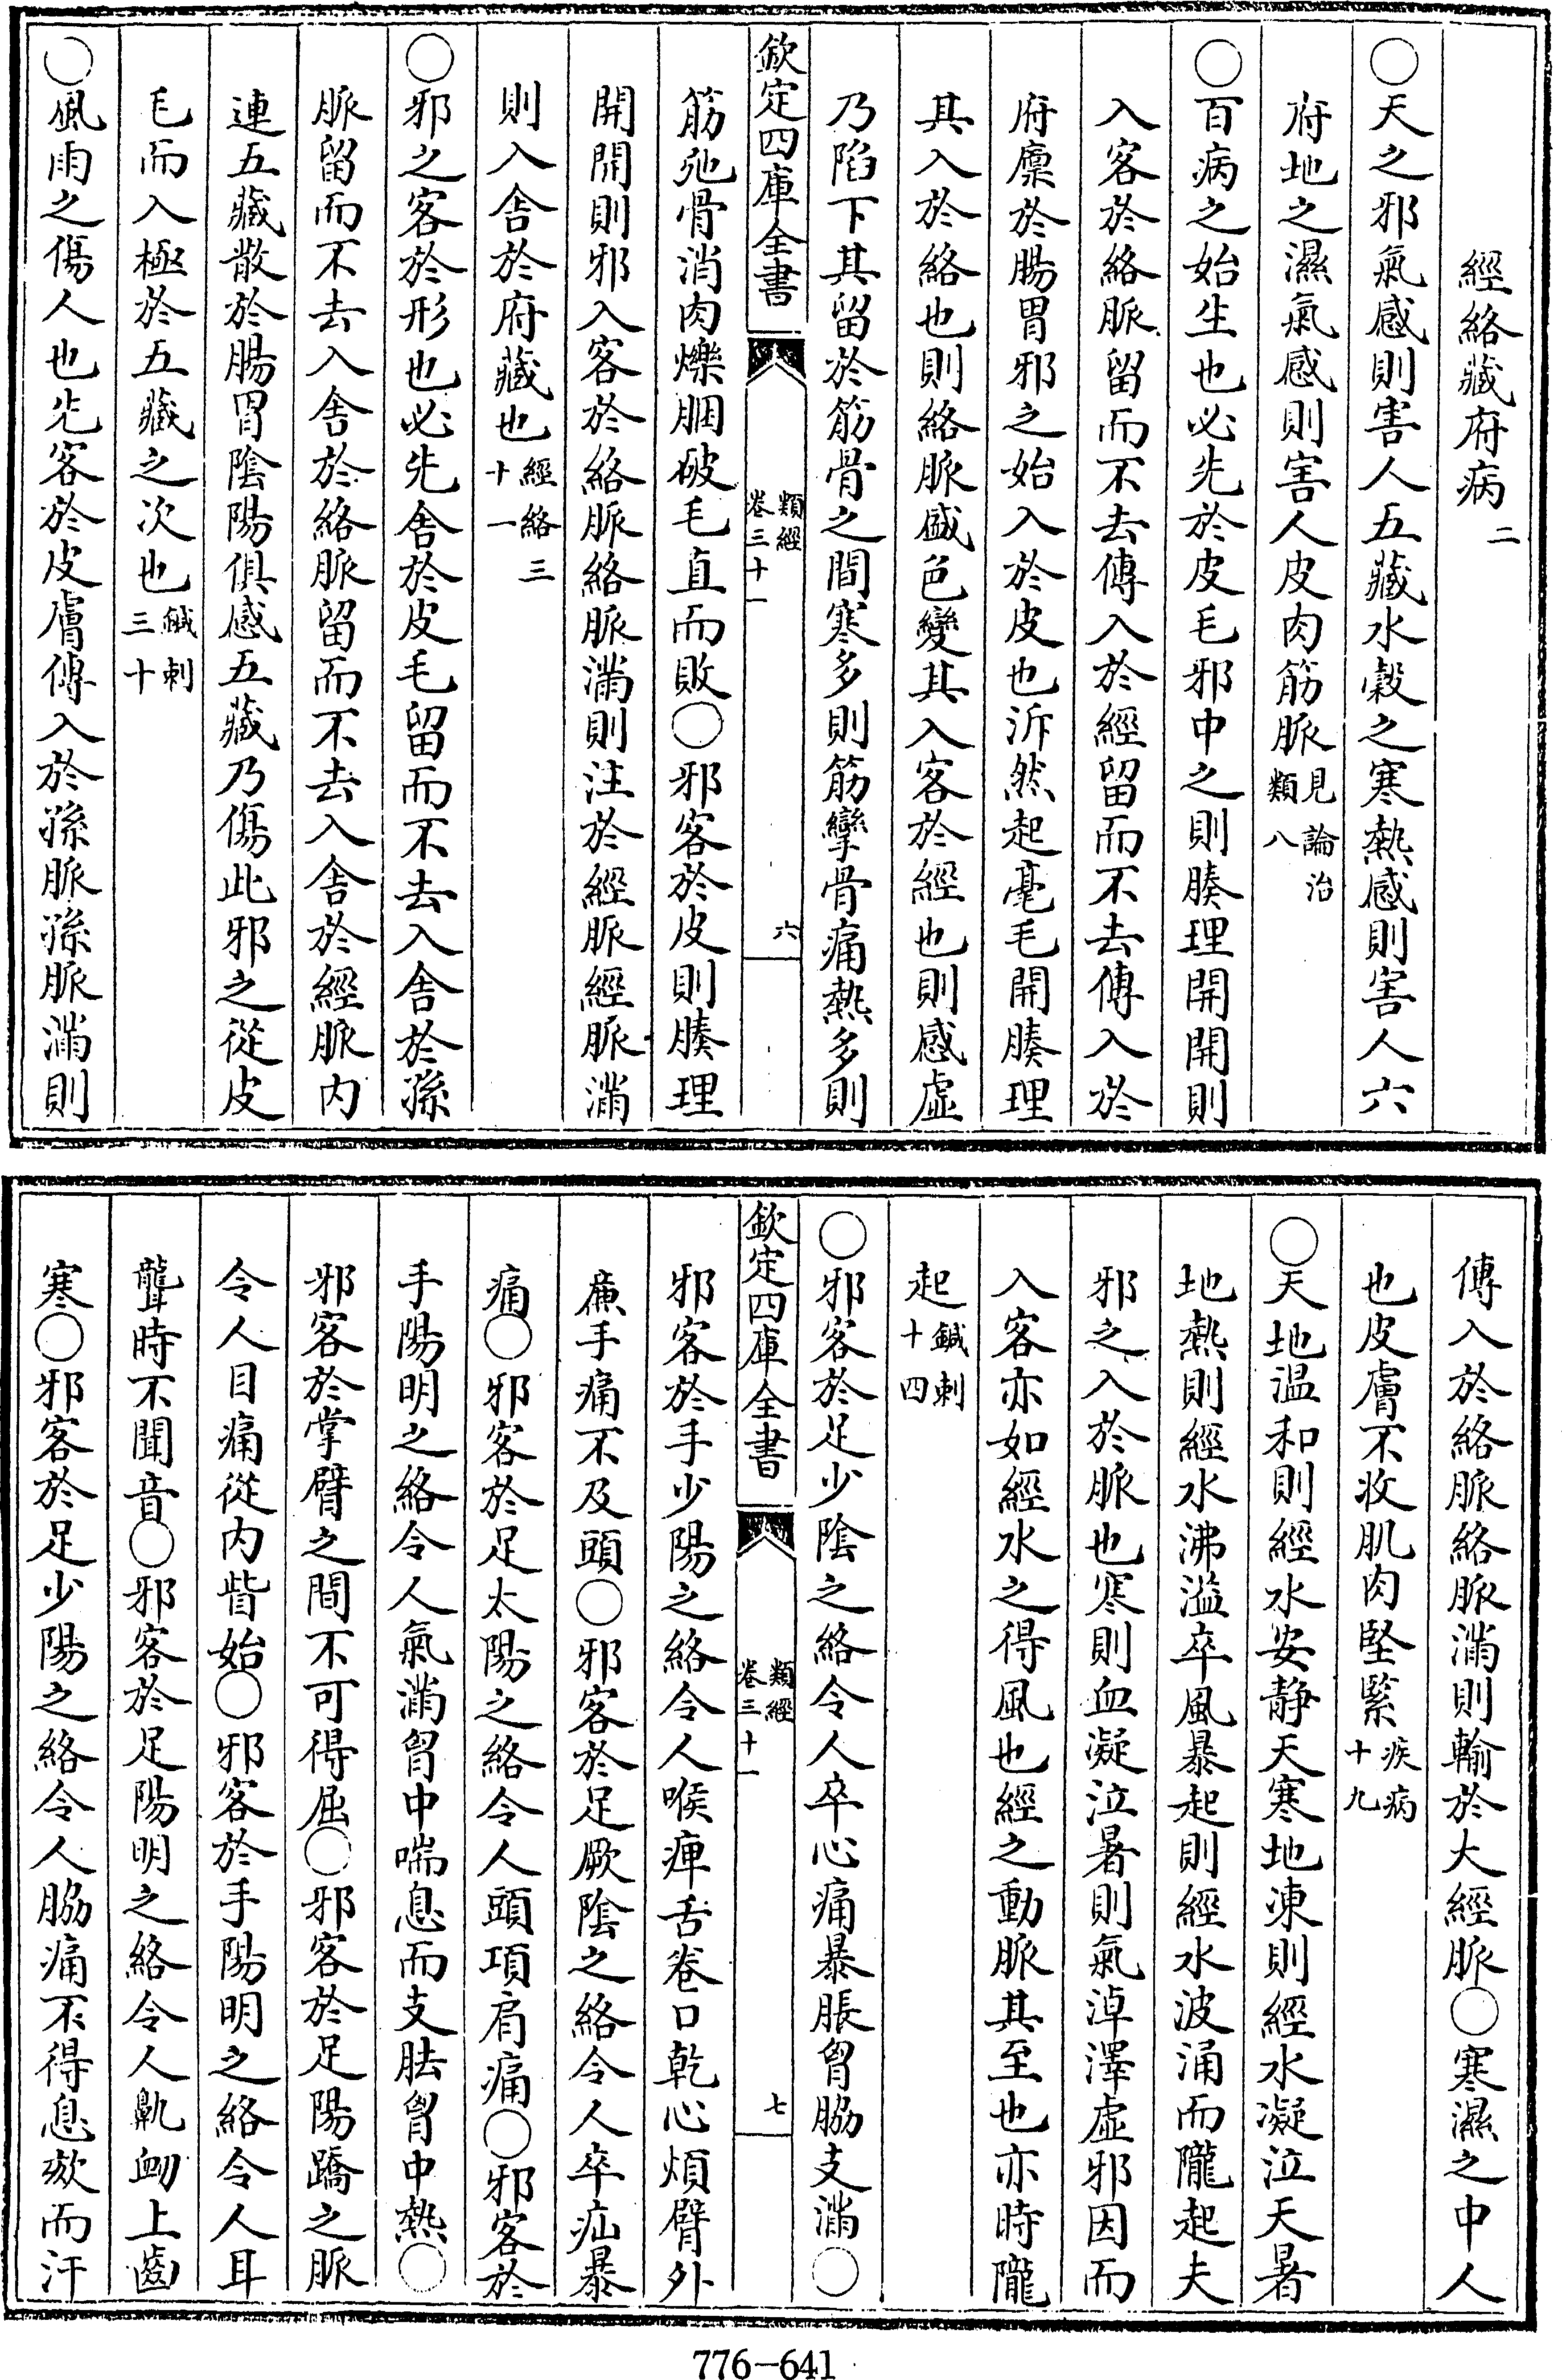 經絡藏府病二
○天之邪氣感則害人五藏水穀之寒熱感則害人六
府地之濕氣感則害人皮肉筋脈見論治類八
○百病之始生也必先於皮毛邪中之則腠理開開則
入客於絡脈留而不去傳入於經留而不去傳入於
府廩於腸胃邪之始入於皮也泝然起毫毛開腠理
其入於絡也則絡脈盛色變其入客於經也則感虛
乃陷下其留於筋骨之間寒多則筋攣骨痛熱多則
欽定四庫全書
類經卷三十一
六
筋弛骨消肉爍䐃破毛直而敗○邪客於皮則腠理
開開則邪入客於絡脈絡脈滿則注於經脈經脈滿
則入舍於府藏也經絡三十一
○邪之客於形也必先舍於皮毛留而不去入舍於孫
脈留而不去入舍於絡脈留而不去入舍於經脈內
連五藏散於腸胃陰陽俱感五藏乃傷此邪之從皮
毛而入極於五藏之次也鍼刺三十
○風雨之傷人也先客於皮膚傳入於孫脈孫脈滿則
傳入於絡脈絡脈滿則輸於大經脈○寒濕之中人
也皮膚不收肌肉堅緊疾病十九
○天地溫和則經水安靜天寒地凍則經水凝泣天暑
地熱則經水沸溢卒風暴起則經水波涌而隴起夫
邪之入於脈也寒則血凝泣暑則氣淖澤虛邪因而
入客亦如經水之得風也經之動脈其至也亦時隴
起鍼刺十四
○邪客於足少陰之絡令人卒心痛暴脹胷脇支滿○
欽定四庫全書
類經卷三十一
七
邪客於手少陽之絡令人喉痺舌卷口乾心煩臂外
廉手痛不及頭○邪客於足厥陰之絡令人卒疝暴
痛○邪客於足太陽之絡令人頭項肩痛○邪客於
手陽明之絡令人氣滿胷中喘息而支胠胷中熱○
邪客於掌臂之間不可得屈○邪客於足陽蹻之脈
令人目痛從內眥始○邪客於手陽明之絡令人耳
聾時不聞音○邪客於足陽明之絡令人鼽衄上齒
寒○邪客於足少陽之絡令人脇痛不得息欬而汗
776-641